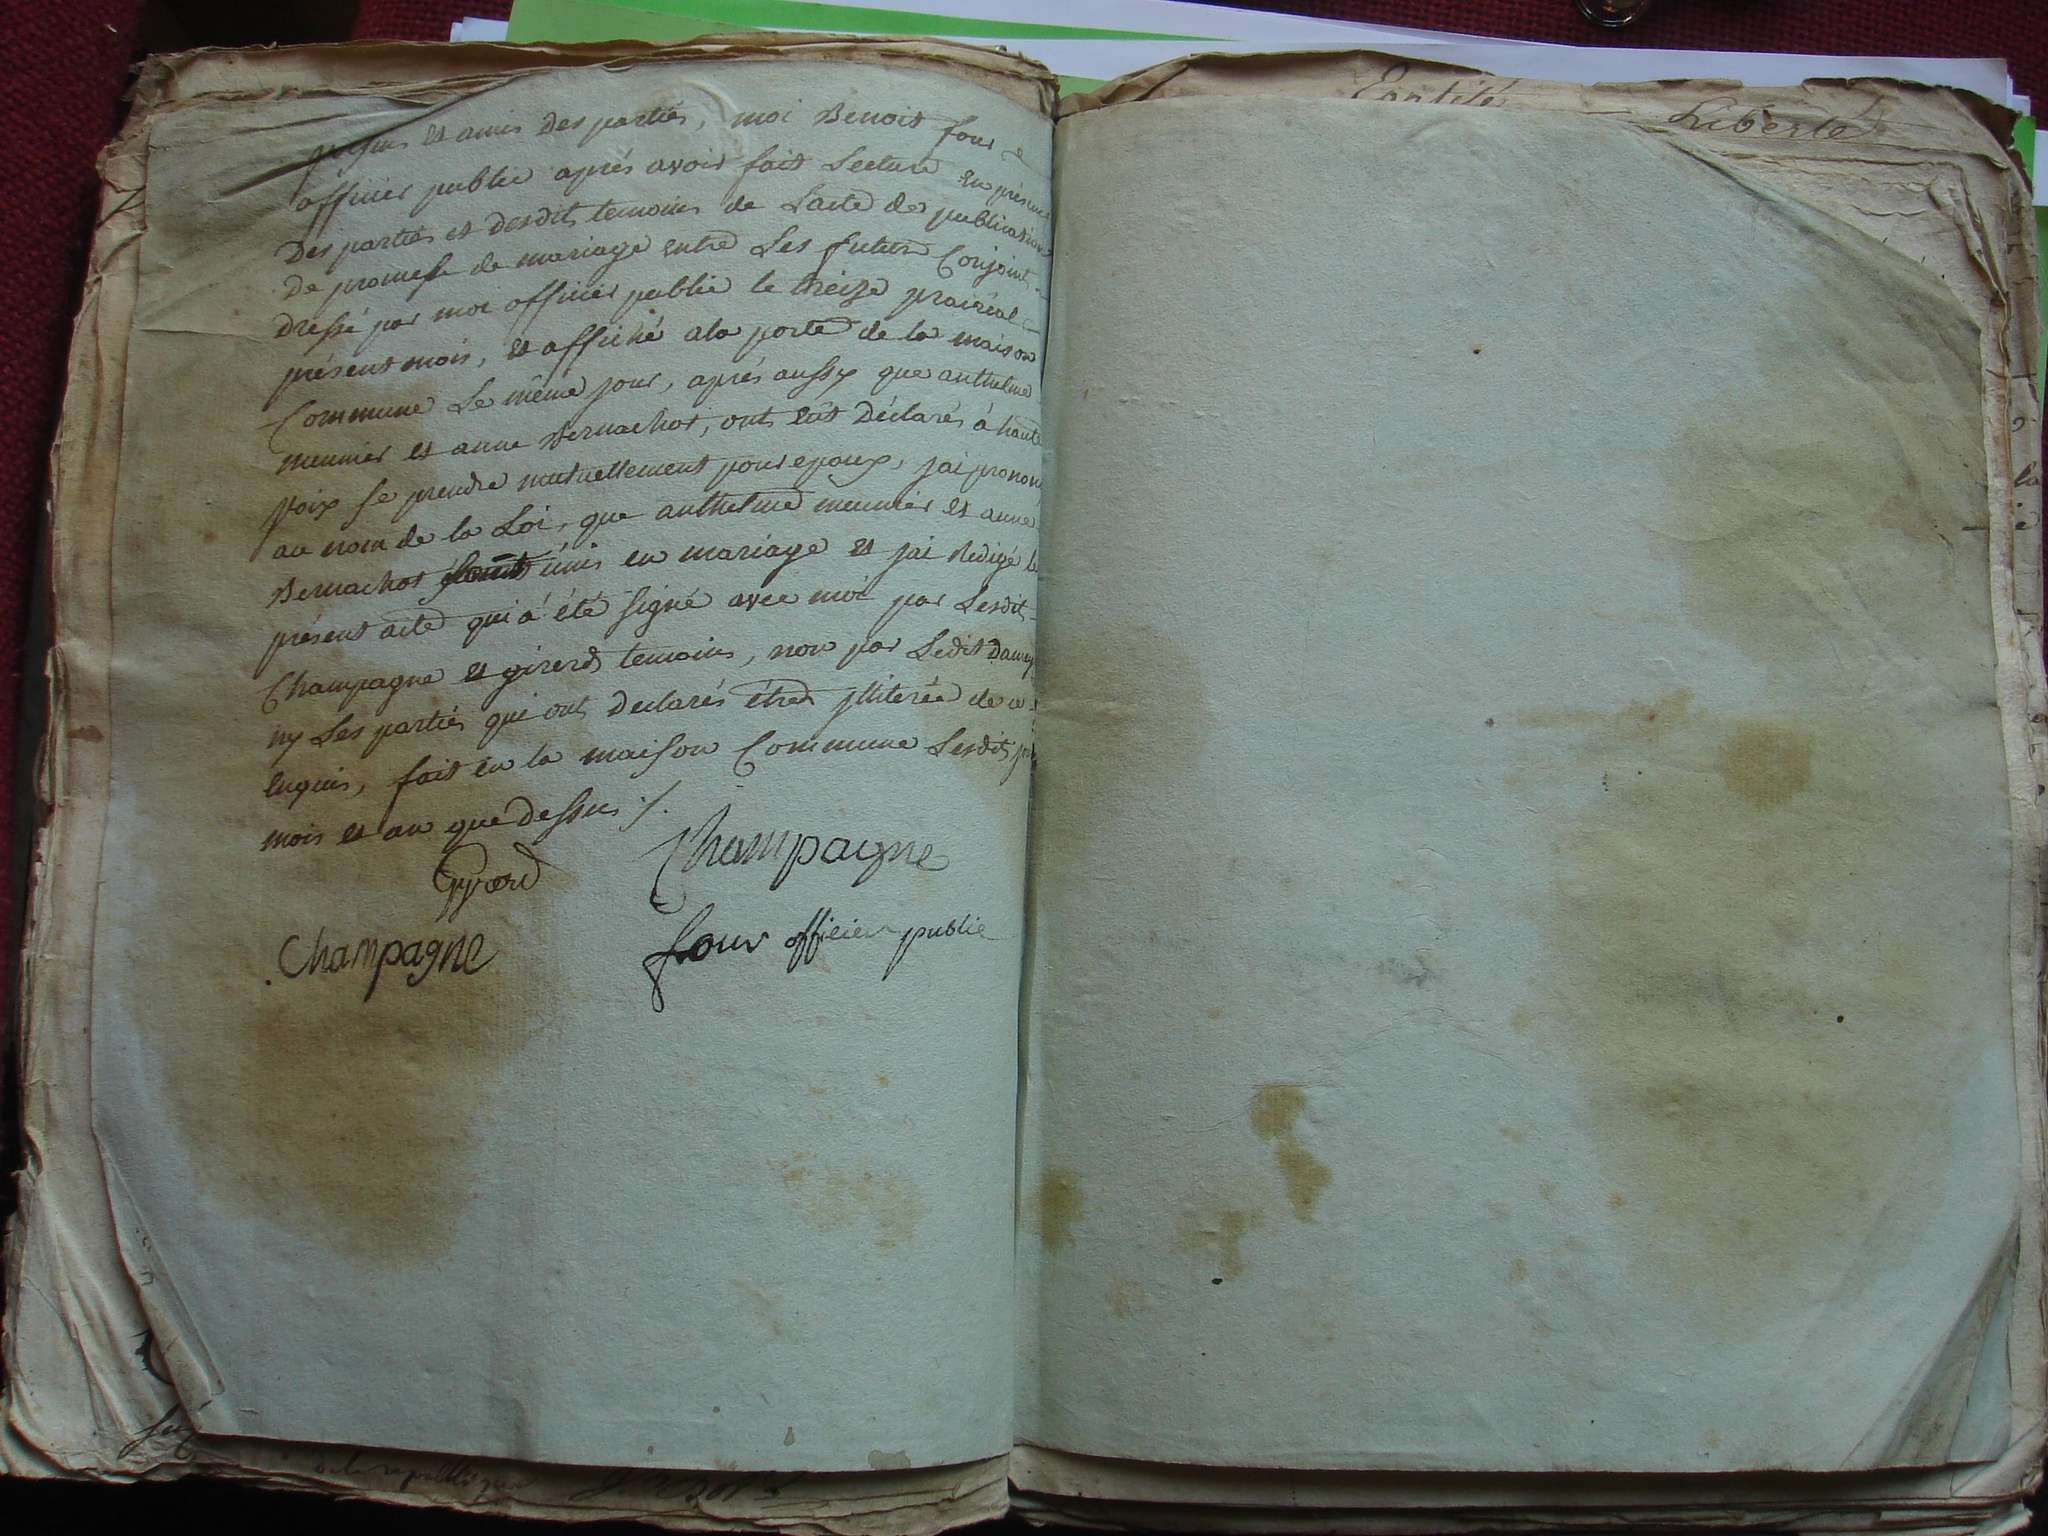 et amis des partiés, moi Benoit four
officier public aprés avoir fait Lecture en présence
Des partiés et desdits temoins de Lacte des publications
De promesse de mariage entre Les futurs Conjoints
Dressé par moi officier public le treize prairéal
présent mois, et affiché ala porte de la maison
Commune Le même jour, aprés aussy que anthelme
meunier et anne Bernachot, onts eut Déclarés á haute
Voix se prendre mutuellement pour epoux, jai prononcé
au nom de la Loi, que anthelme meunier et anne
Bernachot sont unis en mariage et jai Redigé le
présent acte qui á été signé avec moi par Lesdit
Champagne et girerd temoins, non par Ledit
ny Les partiés qui ont Declarés étres jlliterée de ce
enquis, fait en la maison Commune Lesdits jour
mois et an que Dessus ./.
Gyrerd
Champagne
Champagne
four officier public
Egalité
Liberté
la
de la republique